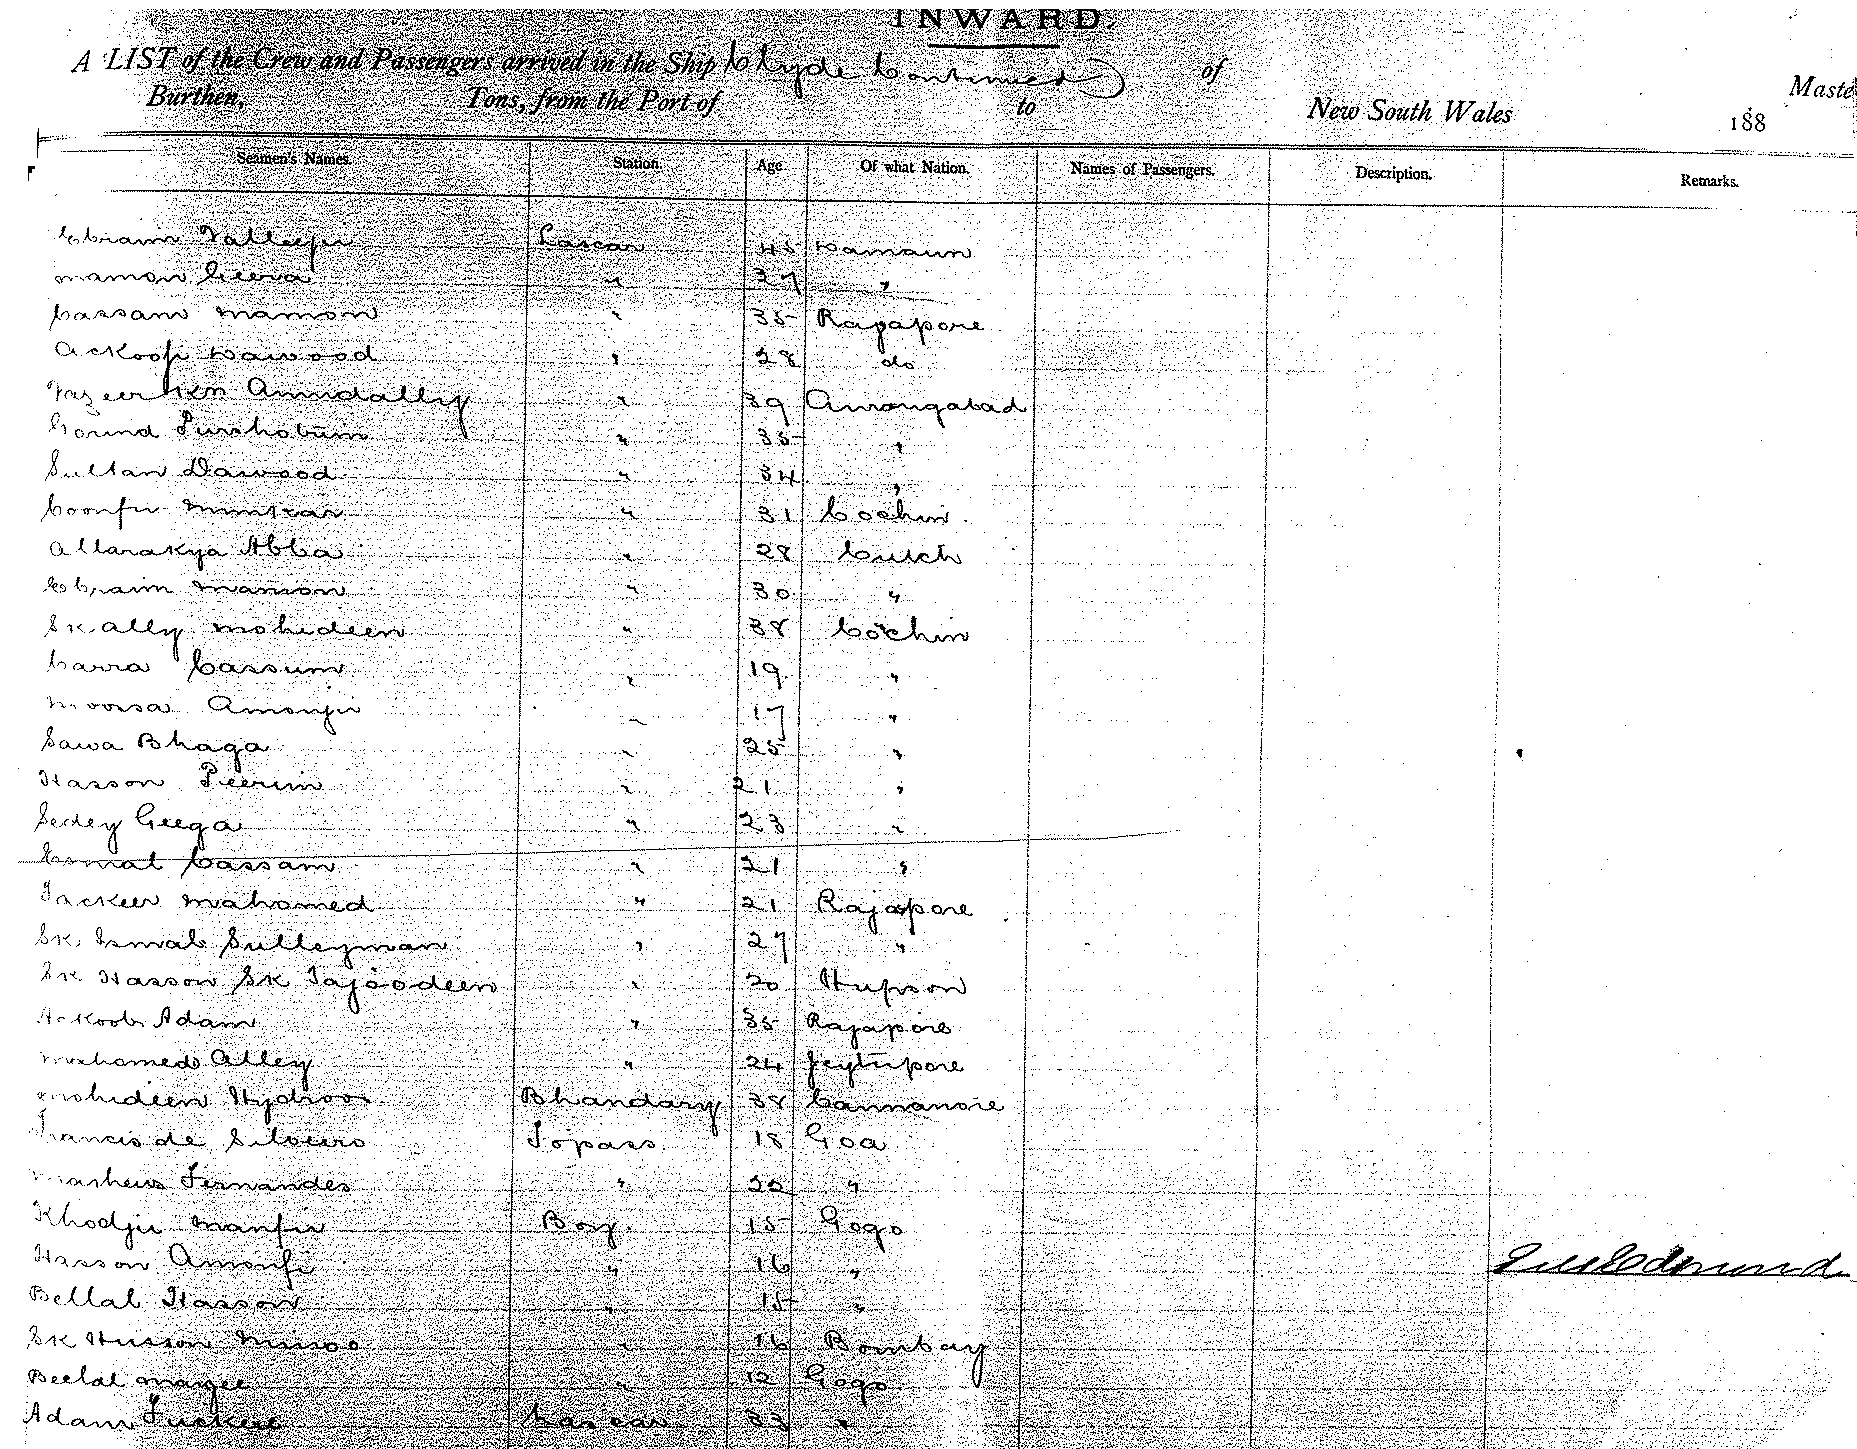 INWARD.
A LIST of the Crew and Passengers arrived in the Ship Clyde Continued of Maste
Burthen, Tons, from the Port of to New South Wales 188
Seamen's Names. Station. Age Of what Nation. Names of Passengers. Description. Remarks.
Ebram Lascar 45 Damaun
Mamon Geeva " 27 "
Cassam Mamon " 35 Rajapore
Ackoop Dawood " 28 do
Vazeer Amudally " 39 Aurangabad
Govind Purshotum " 35 "
Sultan Dawood " 34 "
" 31 Cochin
Allarakya Abba " 28 Cutch
Ebraim Mamon " 30 "
Sk. Ally Mohideen " 38 Cochin
Carra Cassum " 19 "
Moosa Amonji " 17 "
Sawa Bhaga " 25 "
Hasson Peerun " 21 "
Sedey Geega " 23 "
Esmal Cassam " 21 "
Tackeer Mahomed " 21 Rajapore
Sk. Ismal Sulleyman " 27 "
Sk. Hasson Sk Tajoodeen " 20 Hupson
Ackoob Adam " 35 Rajapore
Mahomed Alley " 24 Jeytapore
Mohideen Hydroos Bhandary 38 Cannanore
Francis de Silveiro Topass 18 Goa
Fernandes " 20 "
Khodjii Boy. 15 Gogo
Hasson Amonji " 16 "
Bellal Hasson " 15 "
Sk Husson " 16 Bombay
Beelal " 12 Gogo
Adam Tuckee Lascar 33 "